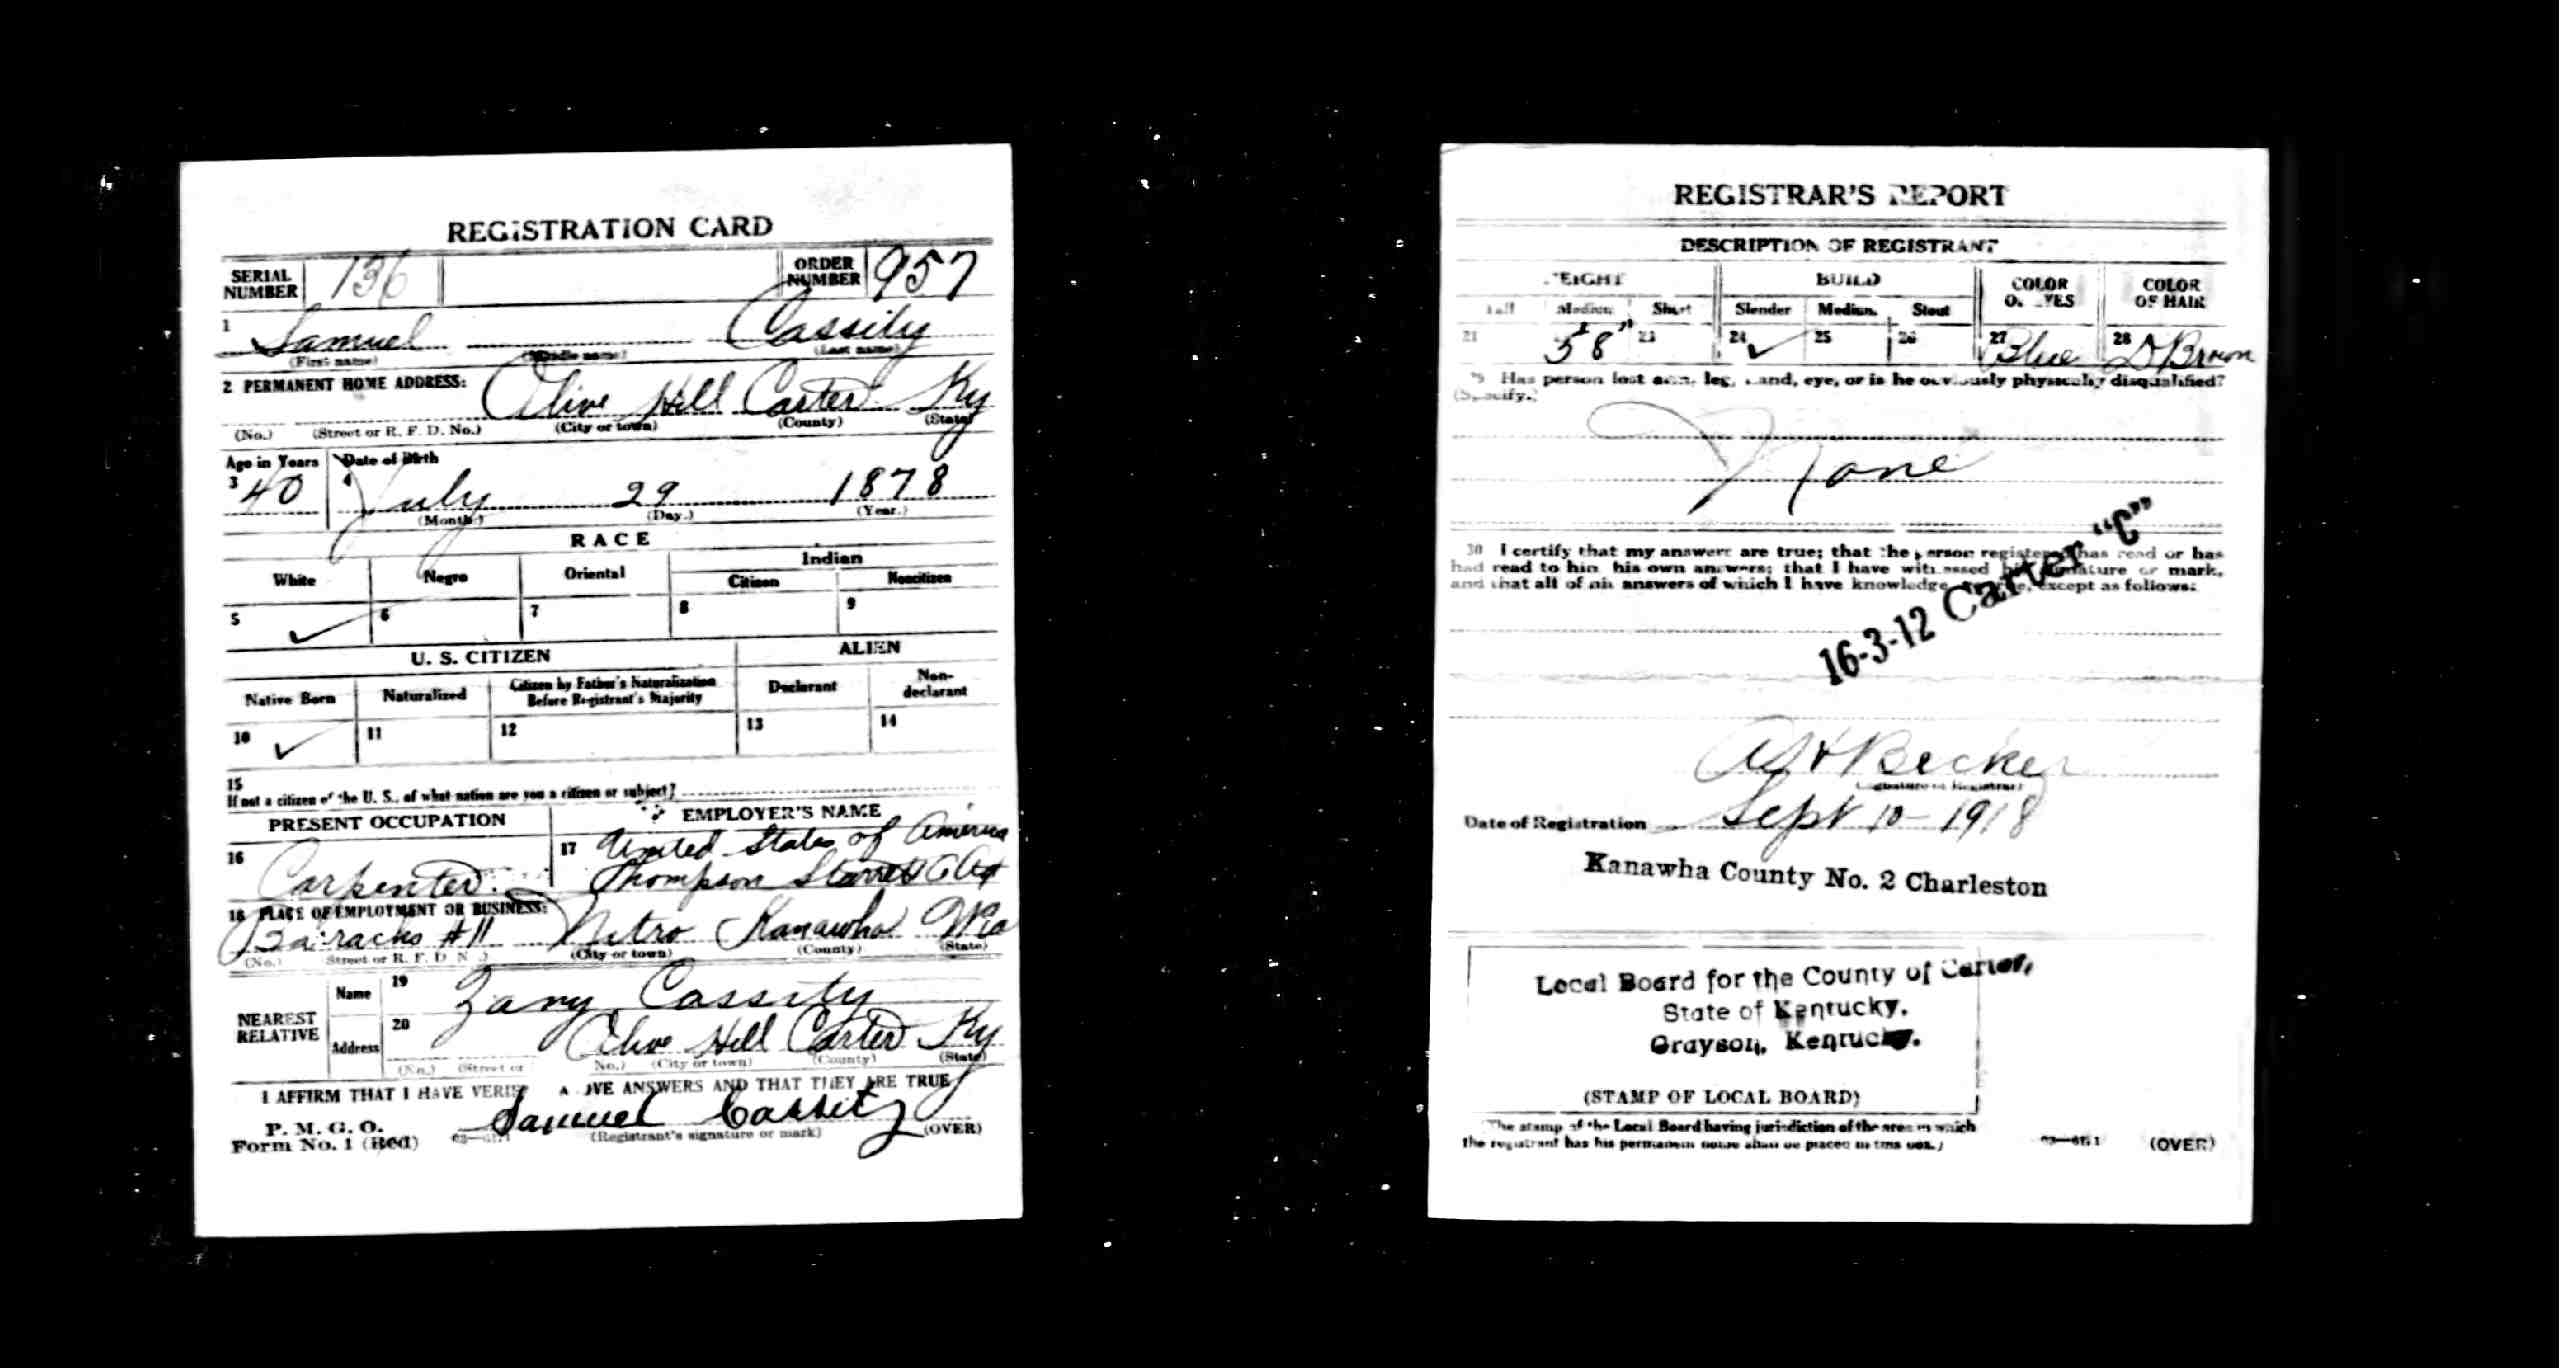 REGISTRATION CARD
SERIAL NUMBER 136 ORDER NUMBER 957
1 Samuel Cassity
(First name) (Middle name) (Last name)
2 PERMANENT HOME ADDRESS:
Olive Hill Carter Ky
(No.) (Street or R. F. D. No.) (City or town) (County) (State)
Age in Years Date of Birth
3 40 4 July 29 1878
(Month.) (Day.) (Year.)
RACE
White Negro Oriental Indian
Citizen Noncitizen
5 ✓ 6 7 8 9
U. S. CITIZEN ALIEN
Native Born Naturalized Citizen by Father's Naturalization Before Registrant's Majority Declarant Non-declarant
10 ✓ 11 12 13 14
15
If not a citizen of the U. S., of what nation are you a citizen or subject?
PRESENT OCCUPATION EMPLOYER'S NAME
16 Carpenter 17 United States of America
Thompson
18 PLACE OF EMPLOYMENT OR BUSINESS:
Barracks #11 Nitro Kanawha W Va
(No.) Street or R. F. D. N .) (City or town) (County) (State)
NEAREST RELATIVE
Name 19 Zany Cassity
Address 20 Olive Hill Carter Ky
(No.) (Street or No.) (City or town) (County) (State)
I AFFIRM THAT I HAVE VERIF A OVE ANSWERS AND THAT THEY ARE TRUE
P. M. G. O.
Form No. 1 (Red) Samuel Cassity
(Registrant's signature or mark) (OVER)
REGISTRAR'S REPORT
DESCRIPTION OF REGISTRANT
HEIGHT BUILD COLOR OF EYES COLOR OF HAIR
Tall Medium Short Slender Medium Stout
21 5' 8" 23 24 ✓ 25 26 27 Blue 28 D Brown
29 Has person lost arm, leg, hand, eye, or is he obviously physically disqualified?
(Specify.)
None
30 I certify that my answers are true; that the person registered has read or has
had read to him his own answers; that I have witnessed his signature or mark,
and that all of his answers of which I have knowledge are true, except as follows:
16-3-12 Carter "C"
Becker
(Signature of Registrar)
Date of Registration Sept 10 - 1918
Kanawha County No. 2 Charleston
Local Board for the County of Carter,
State of Kentucky.
Grayson, Kentucky.
(STAMP OF LOCAL BOARD)
The stamp of the Local Board having jurisdiction of the area in which
the registrant has his permanent home shall be placed in this box.)
(OVER)